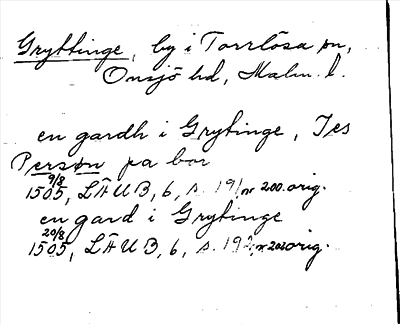 Gryttinge, by i Torrlösa sn,
Onsjö hd, Malm. l.
en gardh i Grytinge, Jes
Persøn pa bor
9/8
1505, LÄUB, 6, s. 191, nr 200. orig.
en gard i Grytinge
20/8
1505, LÄUB, 6, s. 192, nr 202 orig.